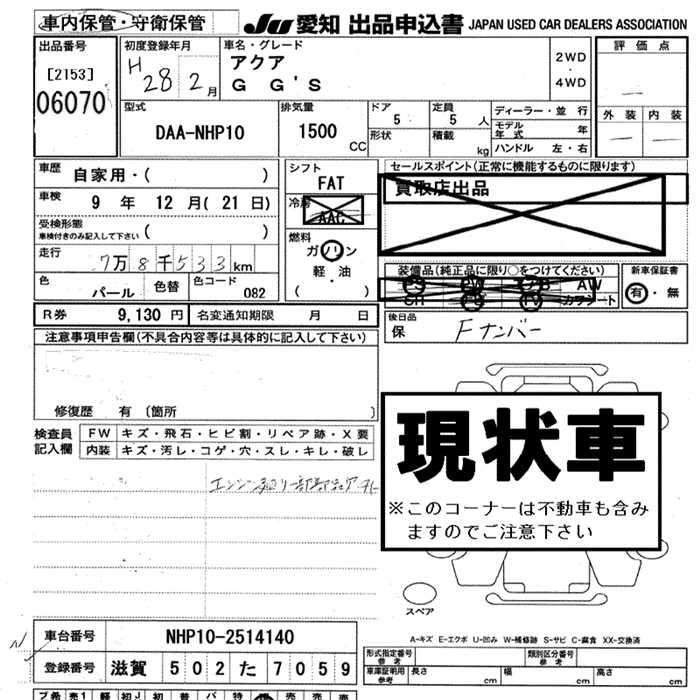 車内保管・守衛保管
JU 愛知 出品申込書 JAPAN USED CAR DEALERS ASSOCIATION
出品番号
[2153]
06070
初度登録年月
H 28 2月
車名・グレード
アクア
G G'S
2WD
・
4WD
評価点
外装 内装
型式
DAA-NHP10
排気量
1500 CC
ドア
5
形状
定員
5 人
積載
kg
ディーラー・並行
モデル年式 年
ハンドル 左・右
車歴
自家用・( )
車検
9 年 12 月( 21 日)
受検形態
車検付きのみ記入して下さい ( )
走行
7万8千533km
色
パール
色替
色コード
082
シフト
FAT
冷房
AAC
燃料
ガソリン
軽・油
( )
セールスポイント(正常に機能するものに限ります)
買取店出品
装備品(純正品に限り○をつけてください)
AW
カラシート
新車保証書
有・無
R券 9,130 円 名変通知期限 月 日
後日品
保 Fナンバー
注意事項申告欄(不具合内容等は具体的に記入して下さい)
修復歴 有 〔箇所 〕
検査員
記入欄
FW キズ・飛石・ヒビ割・リペア跡・X要
内装 キズ・汚レ・コゲ・穴・スレ・キレ・破レ
現状車
※このコーナーは不動車も含み
ますのでご注意下さい
スペア
A-キズ E-エクボ U-凹み W-補修跡 S-サビ C-腐食 XX-交換済
車台番号 NHP10-2514140
登録番号 滋賀 502 た 7059
形式指定番号
参考
類別区分番号
参考
車庫証明用
参考
長さ cm 幅 cm 高さ cm